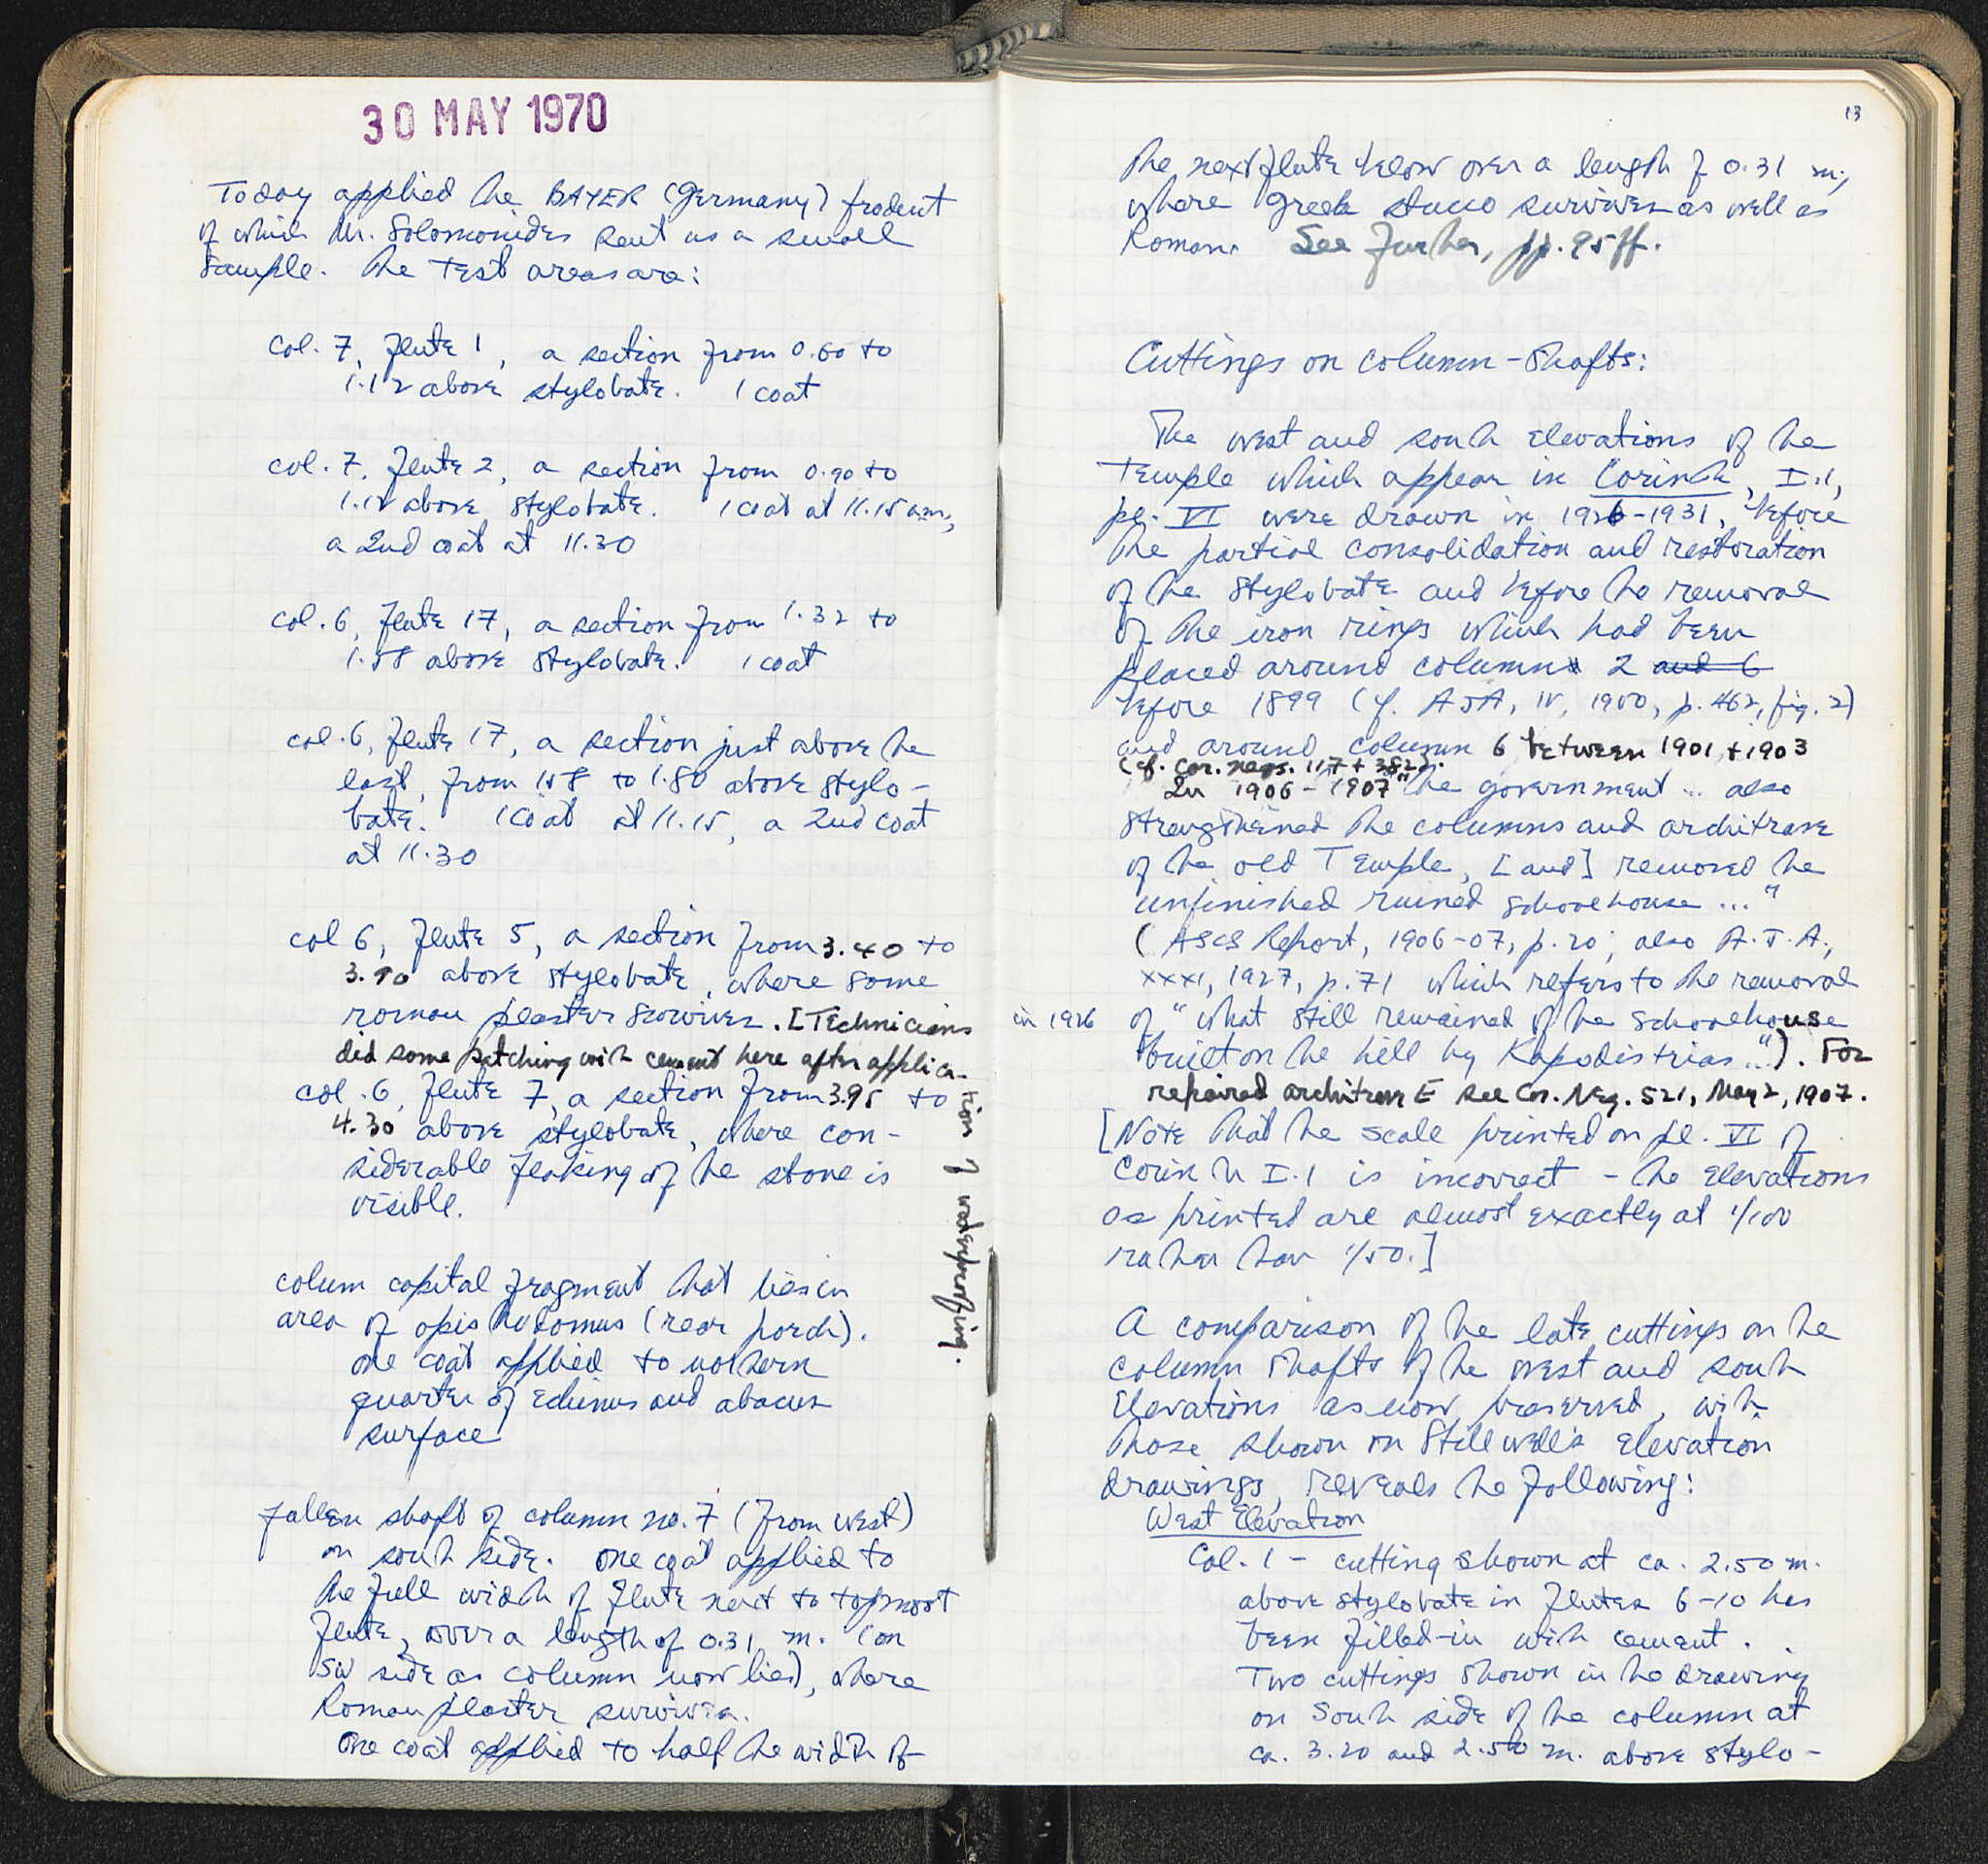 30 MAY 1970
Today applied the BAYER (Germany) product
of which Mr. Solomonides sent us a small
sample. The test areas are:
col. 7, flute 1, a section from 0.60 to
1.12 above stylobate. 1 coat
col. 7, flute 2, a section from 0.90 to
1.12 above stylobate. 1 coat at 11.15 a.m.,
a 2nd coat at 11.30
col. 6, flute 17, a section from 1.32 to
1.58 above stylobate. 1 coat
col. 6, flute 17, a section just above the
last, from 1.58 to 1.80 above stylo-
bate. 1 coat at 11.15, a 2nd coat
at 11.30
col 6, flute 5, a section from 3.40 to
3.90 above stylobate, where some
roman plaster survives. [Technicians
did some patching with cement here after applica-
tion of waterproofing.
col. 6, flute 7, a section from 3.95 to
4.30 above stylobate, where con-
siderable flaking of the stone is
visible.
colum capital fragment that lies in
area of opisthodomus (rear porch).
one coat applied to northern
quarter of echinus and abacus
surface
fallen shaft of column no. 7 (from west)
on south side. one coat applied to
the full width of flute next to topmost
flute, over a length of 0.31 m. (on
SW side as column now lies), where
Roman plaster survives.
One coat applied to half the width of
13
the next flute below over a length of 0.31 m.,
where Greek stucco survives as well as
Roman. See further, pp. 95 ff.
Cuttings on column-shafts:
The west and south elevations of the
Temple which appear in Corinth, I.1,
pl. VI were drawn in 1926-1931, before
the partial consolidation and restoration
of the stylobate and before the removal
of the iron rings which had been
placed around column 2 and 6
before 1899 (cf. AJA, IV, 1900, p. 462, fig. 2)
and around column 6 between 1901 + 1903
(cf. Cor. negs. 117 + 382).
In 1906-1907 "the government ... also
strengthened the columns and architrave
of the old Temple, [and] removed the
unfinished ruined schoolhouse ..."
(ASCS Report, 1906-07, p. 20; also A.J.A.,
XXXI, 1927, p. 71 which refers to the removal
in 1926 of "what still remained of the schoolhouse
built on the hill by Kapodistrias..."). For
repaired architrave E see Cor. Neg. 521, May 2, 1907.
[Note that the scale printed on pl. VI of
Corinth I.1 is incorrect - the elevations
as printed are almost exactly at 1/100
rather than 1/50.]
A comparison of the late cuttings on the
column shafts of the west and south
elevations as now preserved, with
those shown on Stillwell's elevation
drawings, reveals the following:
West Elevation
Col. 1 - cutting shown at ca. 2.50 m.
above stylobate in flutes 6-10 has
been filled-in with cement.
Two cuttings shown in the drawing
on south side of the column at
ca. 3.20 and 2.50 m. above stylo-